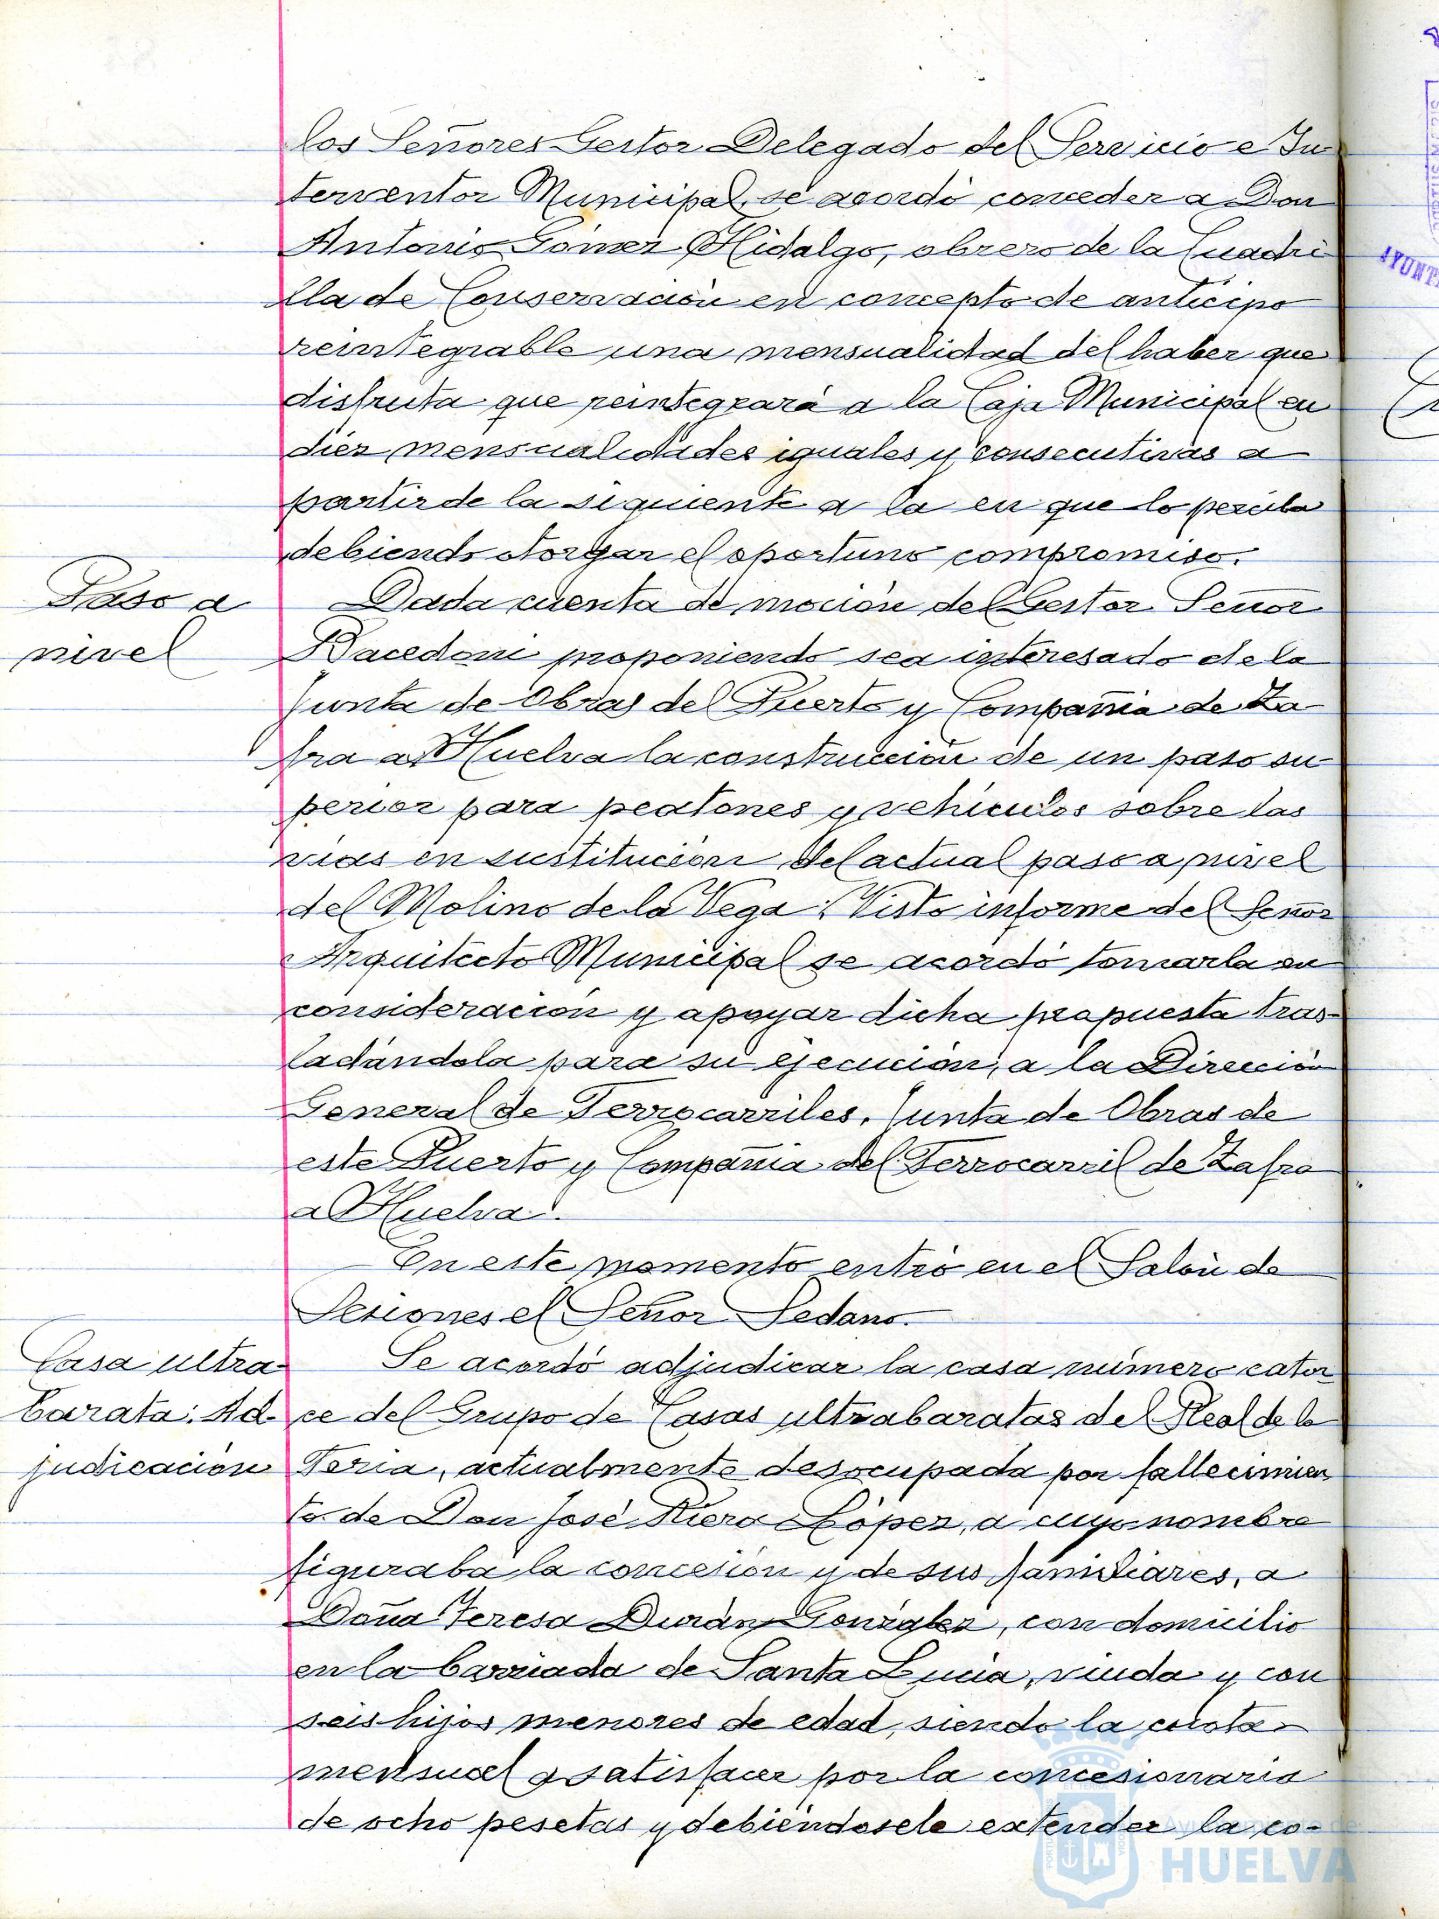 los Señores Gestor Delegado del Servicio e In-
terventor Municipal, se acordó conceder a Don
Antonio Gómez Hidalgo, obrero de la Cuadri-
lla de Conservación en concepto de anticipo
reintegrable una mensualidad del haber que
disfruta que reintegrará a la Caja Municipal en
diez mensualidades iguales y consecutivas a
partir de la siguiente a la en que lo perciba
debiendo otorgar el oportuno compromiso.
Paso a
nivel
Dada cuenta de moción del Gestor Señor
proponiendo sea interesado de la
Junta de Obras del Puerto y Compañia de Za-
fra a Huelva la construcción de un paso su-
perior para peatones y vehículos sobre las
vias en sustitución del actual paso a nivel
del Molino de la Vega; Visto informe del Señor
Arquitecto Municipal se acordó tomarla en
consideración y apoyar dicha propuesta tras-
ladándola para su ejecución, a la Dirección
General de Ferrocarriles, Junta de Obras de
este Puerto y Compañia del Ferrocarril de Zafra
a Huelva.
En este momento entró en el Salón de
Sesiones el Señor Sedano.
Casa ultra-
barata: Ad-
judicación
Se acordó adjudicar la casa número cator-
ce del Grupo de Casas ultrabaratas del Real de la
Feria, actualmente desocupada por fallecimien-
to de Don José Riera López, a cuyo nombre
figuraba la concesión y de sus familiares, a
Doña Teresa Durán González, con domicilio
en la barriada de Santa Lucia, viuda y con
seis hijos menores de edad, siendo la cuota
mensual a satisfacer por la concesionaria
de ocho pesetas y debiéndosele extender la co-
Ayuntamiento de
HUELVA